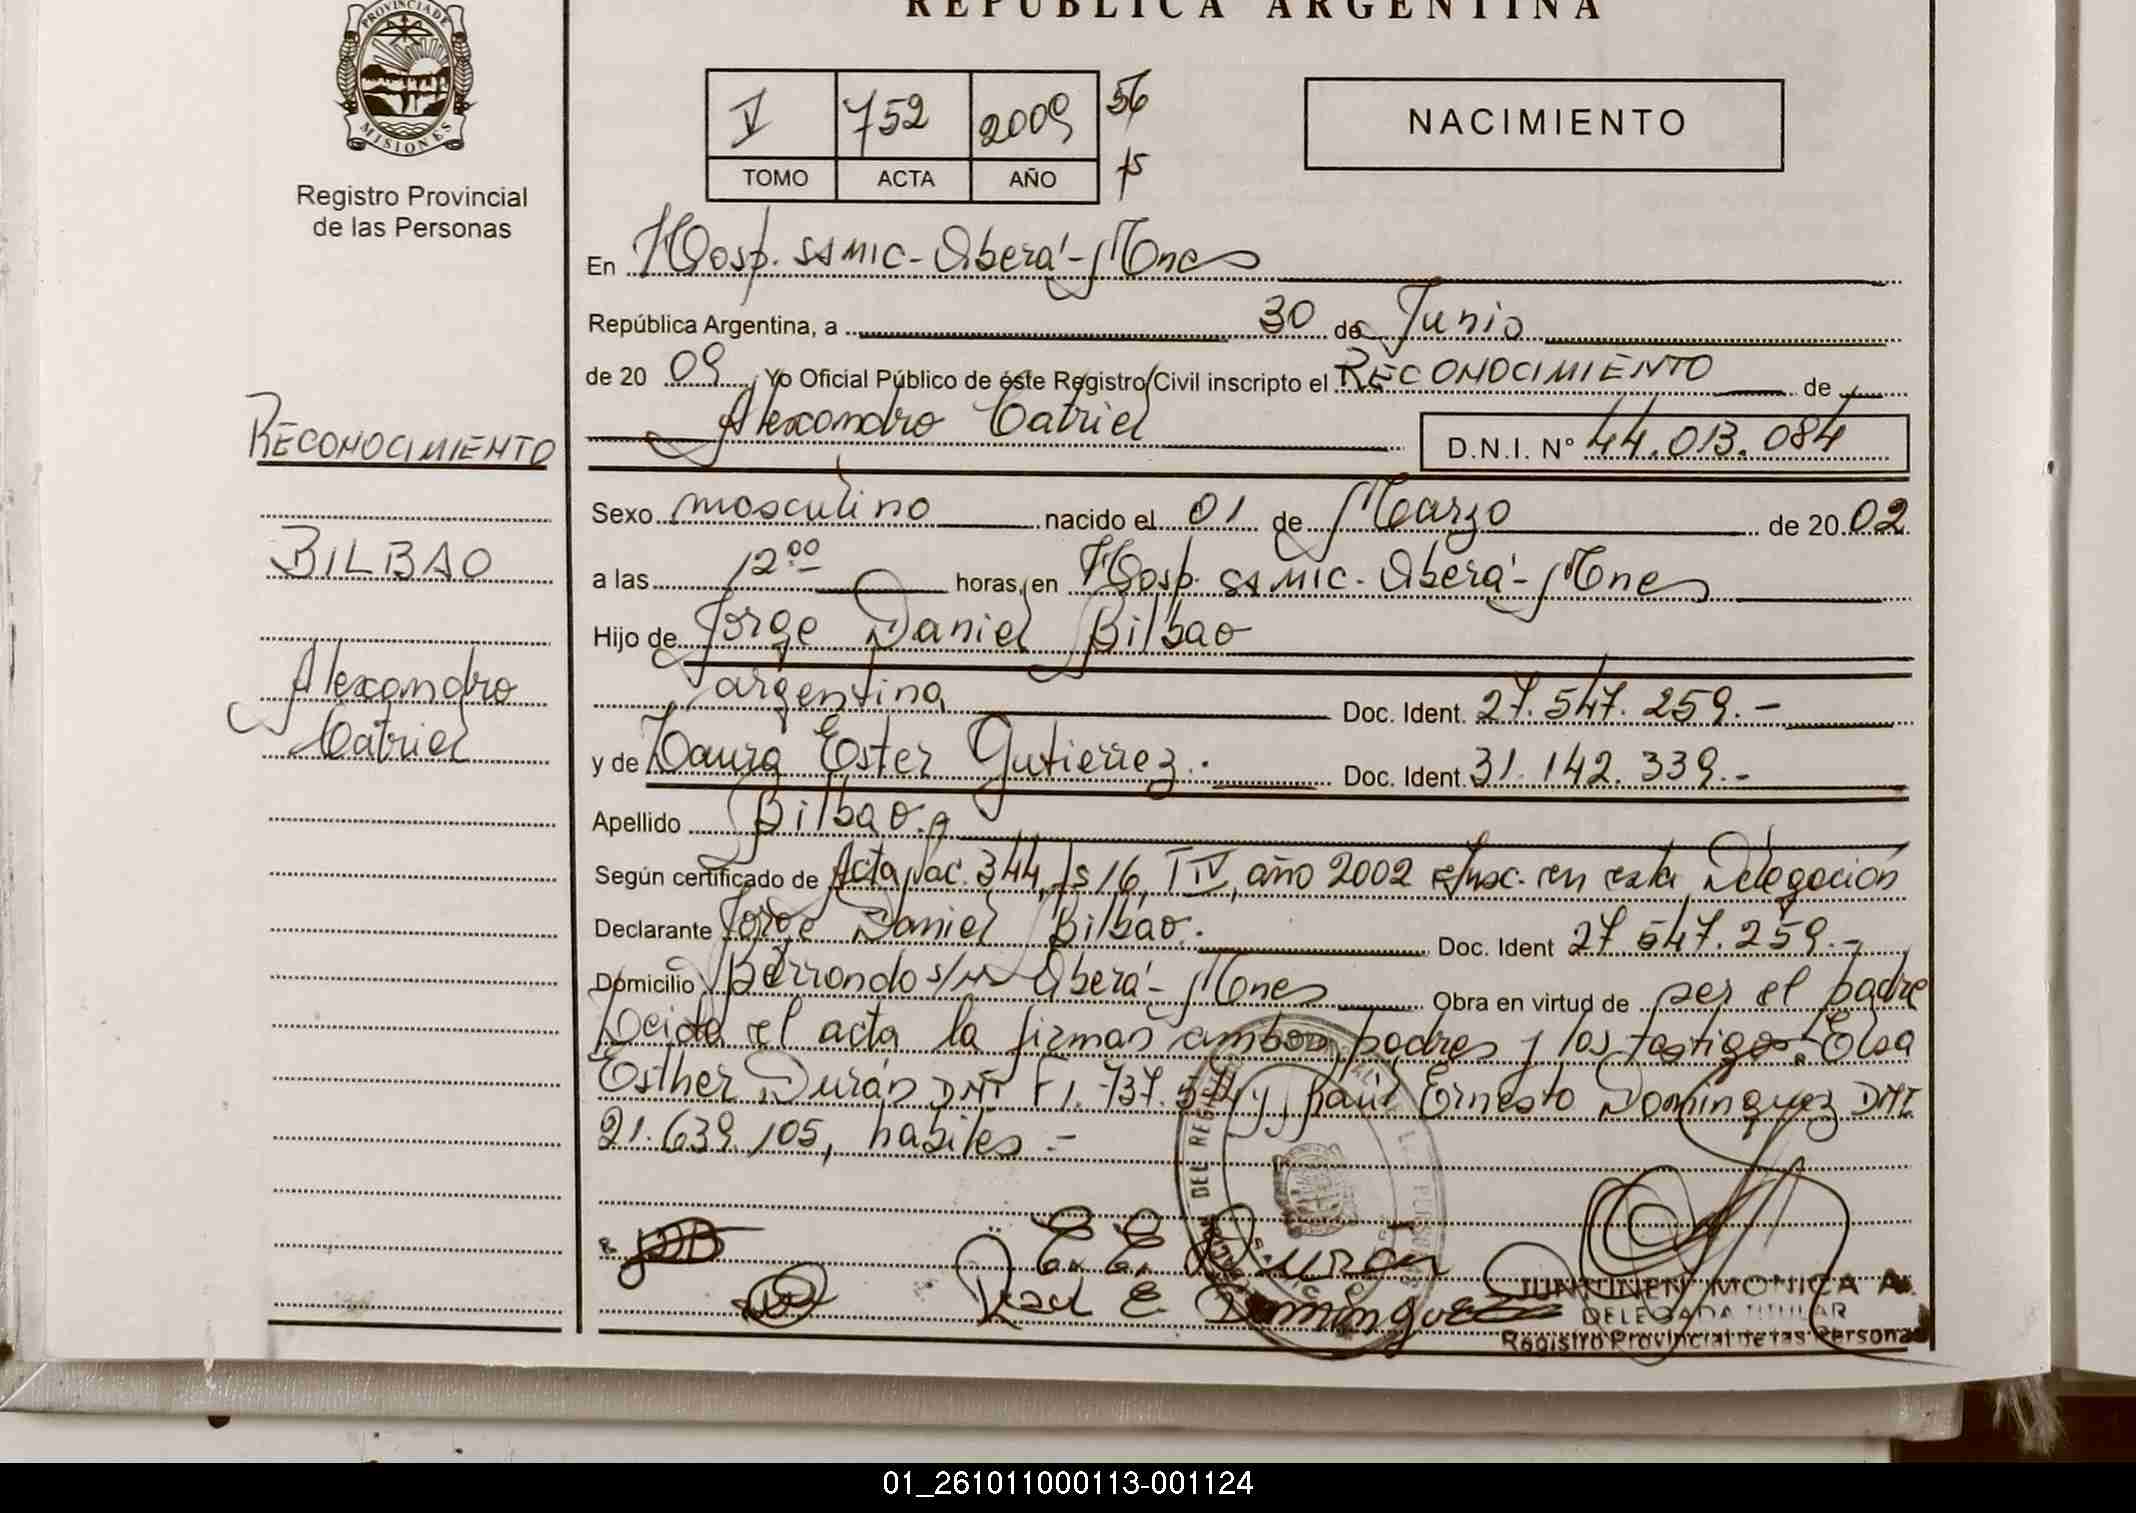 REPUBLICA ARGENTINA
PROVINCIA DE
MISIONES
Registro Provincial
de las Personas
V 752 2009 56
TOMO ACTA AÑO
NACIMIENTO
En Hosp. SAMIC - Oberá - Mnes
República Argentina, a 30 de Junio
de 20 09 Yo Oficial Público de éste Registro Civil inscripto el RECONOCIMIENTO de
Alexandro Catriel D.N.I. N° 44.013.084
RECONOCIMIENTO
BILBAO
Alexandro
Catriel
Sexo masculino nacido el 01 de Marzo de 20 02
a las 12 00 horas, en Hosp. SAMIC - Oberá - Mnes
Hijo de Jorge Daniel Bilbao
argentina Doc. Ident. 27.547.259.-
y de Laura Ester Gutierrez.- Doc. Ident. 31.142.339.-
Apellido Bilbao.
Según certificado de Acta Nac. 344, fs 16, T IV, año 2002 Insc. en esta Delegación
Declarante Jorge Daniel Bilbao. Doc. Ident 27.547.259.-
Domicilio Berrondo s/n Oberá - Mnes Obra en virtud de ser el padre
Leida el acta la firman ambos padres y los testigos: Elsa
Esther Durán DNI F1.737. y Raúl Ernesto Dominguez DNI
21.639.105, habiles.-
E. E. Duran
Raul E. Dominguez
JUNTUNEN MONICA A.
DELEGADA TITULAR
Registro Provincial de las Personas
01_261011000113-001124